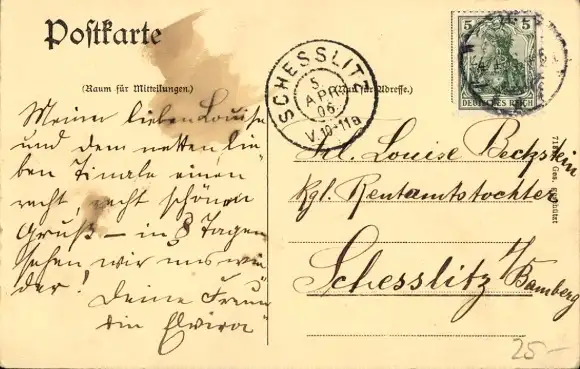 Postkarte
(Raum für Mitteilungen.)
(Nur für Adresse.)
SCHESSLITZ
5
APR.
06
V.10-11a
5 5
DEUTSCHES REICH
Meiner lieben Louise
und dem netten, lie-
ben Finale einen
recht, recht schönen
Gruß – in 8 Tagen
sehen wir uns wie
der!
Deine Freun
din Elvira
Frl. Louise Beckstein
Kgl. Rentamtstochter
Schesslitz
b/Bamberg
Ges. geschützt
25-